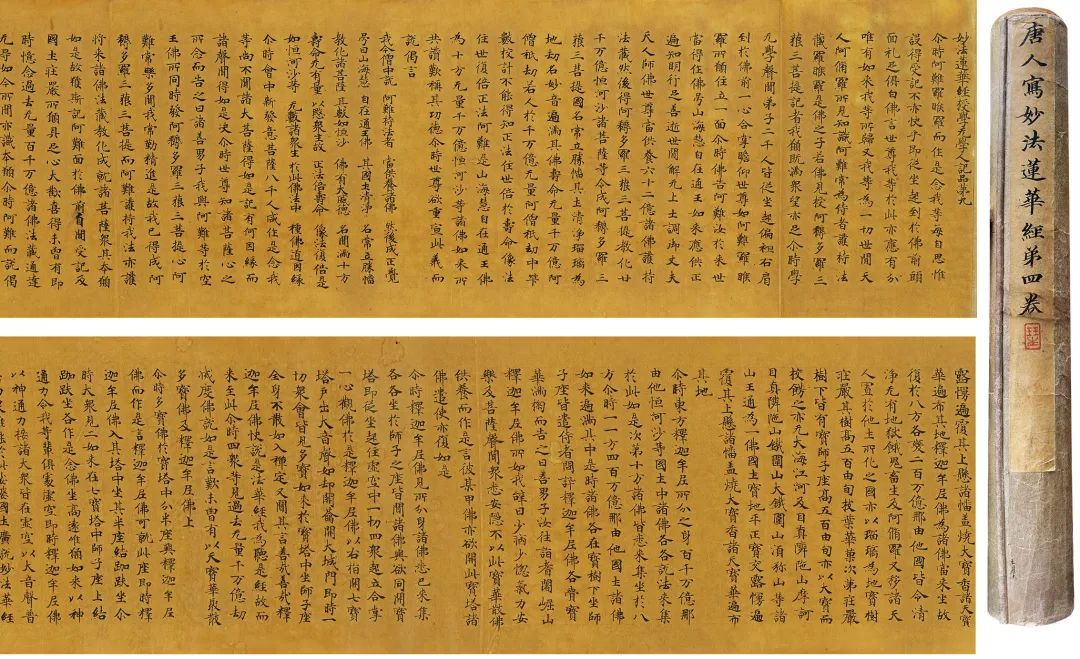 妙法蓮華經授學无學人記品第九
尒時阿難羅睺羅而作是念我等每自思惟
設得受記不亦快乎即從坐起到於佛前頭
面礼足俱白佛言世尊我等於此亦應有分
唯有如来我等所歸又我等為一切世間天
人阿脩羅所見知識阿難常為侍者護持法
藏羅睺羅是佛之子若佛見授阿耨多羅三
藐三菩提記者我願既滿衆望亦足尒時學
无學聲聞弟子二千人皆從坐起偏袒右肩
到於佛前一心合掌瞻仰世尊如阿難羅睺
羅所願住立一面尒時佛告阿難汝於来世
當得作佛号山海慧自在通王如来應供正
遍知明行足善逝世間解无上士調御丈夫
天人師佛世尊當供養六十二億諸佛護持
法藏然後得阿耨多羅三藐三菩提教化廿
千万億恒河沙諸菩薩等令成阿耨多羅三
藐三菩提國名常立勝幡其土清淨瑠璃為
地劫名妙音遍滿其佛壽命无量千万億阿
僧祇劫若人於千万億无量阿僧祇劫中筭
數校計不能得知正法住世倍於壽命像法
住世復倍正法阿難是山海慧自在通王佛
為十方无量千万億恒河沙等諸佛如来所
共讚歎稱其功德尒時世尊欲重宣此義而
說偈言
我今僧中說 阿難持法者 當供養諸佛 然後成正覺
号曰山海慧 自在通王佛 其國土清淨 名常立勝幡
教化諸菩薩 其數如恒沙 佛有大威德 名聞滿十方
壽命无有量 以愍衆生故 正法倍壽命 像法復倍是
如恒河沙等 无數諸衆生 於此佛法中 種佛道因緣
尒時會中新發意菩薩八千人咸作是念我
等尚不聞諸大菩薩得如是記有何因緣而
諸聲聞得如是决尒時世尊知諸菩薩心之
所念而告之曰諸善男子我與阿難等於空
王佛所同時發阿耨多羅三藐三菩提心阿
難常樂多聞我常勤精進是故我已得成阿
耨多羅三藐三菩提而阿難護持我法亦護
将来諸佛法藏教化成就諸菩薩衆其本願
如是故獲斯記阿難面於佛前自聞受記及
國土莊嚴所願具足心大歡喜得未曾有即
時憶念過去无量百千万億諸佛法藏通達
无㝵如今所聞亦識本願尒時阿難而說偈
露幔遍覆其上懸諸幡盖燒大寶香諸天寶
華遍布其地釋迦牟尼佛為諸佛當来坐故
復於八方各變二百万億那由他國皆令清
淨无有地獄餓鬼畜生及阿脩羅又移諸天
人置於他土所化之國亦以瑠璃為地寶樹
莊嚴其樹高五百由旬枝葉華菓次第莊嚴
樹下皆有寶師子座高五百由旬亦以大寶而
校飾之亦无大海江河及目真隣陁山摩訶
目真隣陁山鐵圍山大鐵圍山須弥山等諸
山王通為一佛國土寶地平正寶交露幔遍
覆其上懸諸幡盖燒大寶香諸天寶華遍布
其地
尒時東方釋迦牟尼所分之身百千万億那
由他恒河沙等國土中諸佛各各說法来集
於此如是次第十方諸佛皆悉来集坐於八
方尒時一一方四百万億那由他國土諸佛
如来遍滿其中是時諸佛各在寶樹下坐師
子座皆遣侍者問訊釋迦牟尼佛各賷寶
華滿掬而告之曰善男子汝往詣耆闍崛山
釋迦牟尼佛所如我辭曰少病少惱氣力安
樂及菩薩聲聞衆悉安隱不以此寶華散佛
供養而作是言彼某甲佛亦欲開此寶塔諸
佛遣使亦復如是
尒時釋迦牟尼佛見所分身諸佛悉已来集
各各坐於師子之座皆聞諸佛與欲同開寶
塔即從坐起住虛空中一切四衆起立合掌
一心觀佛於是釋迦牟尼佛以右指開七寶
塔戶出大音聲如却關鑰開大城門即時一
切衆會皆見多寶如来於寶塔中坐師子座
全身不散如入禪定又聞其言善哉善哉釋
迦牟尼佛快說是法華經我為聽是經故而
来至此尒時四衆等見過去无量千万億劫
滅度佛說如是言歎未曾有以天寶華聚散
多寶佛及釋迦牟尼佛上
尒時多寶佛於寶塔中分半座與釋迦牟尼
佛而作是言釋迦牟尼佛可就此座即時釋
迦牟尼佛入其塔中坐其半座結跏趺坐尒
時大衆見二如来在七寶塔中師子座上結
跏趺坐各作是念佛坐高遠唯願如来以神
通力令我等輩俱處虛空即時釋迦牟尼佛
以神通力接諸大衆皆在虛空以大音聲普
唐人寫妙法蓮華經第四卷